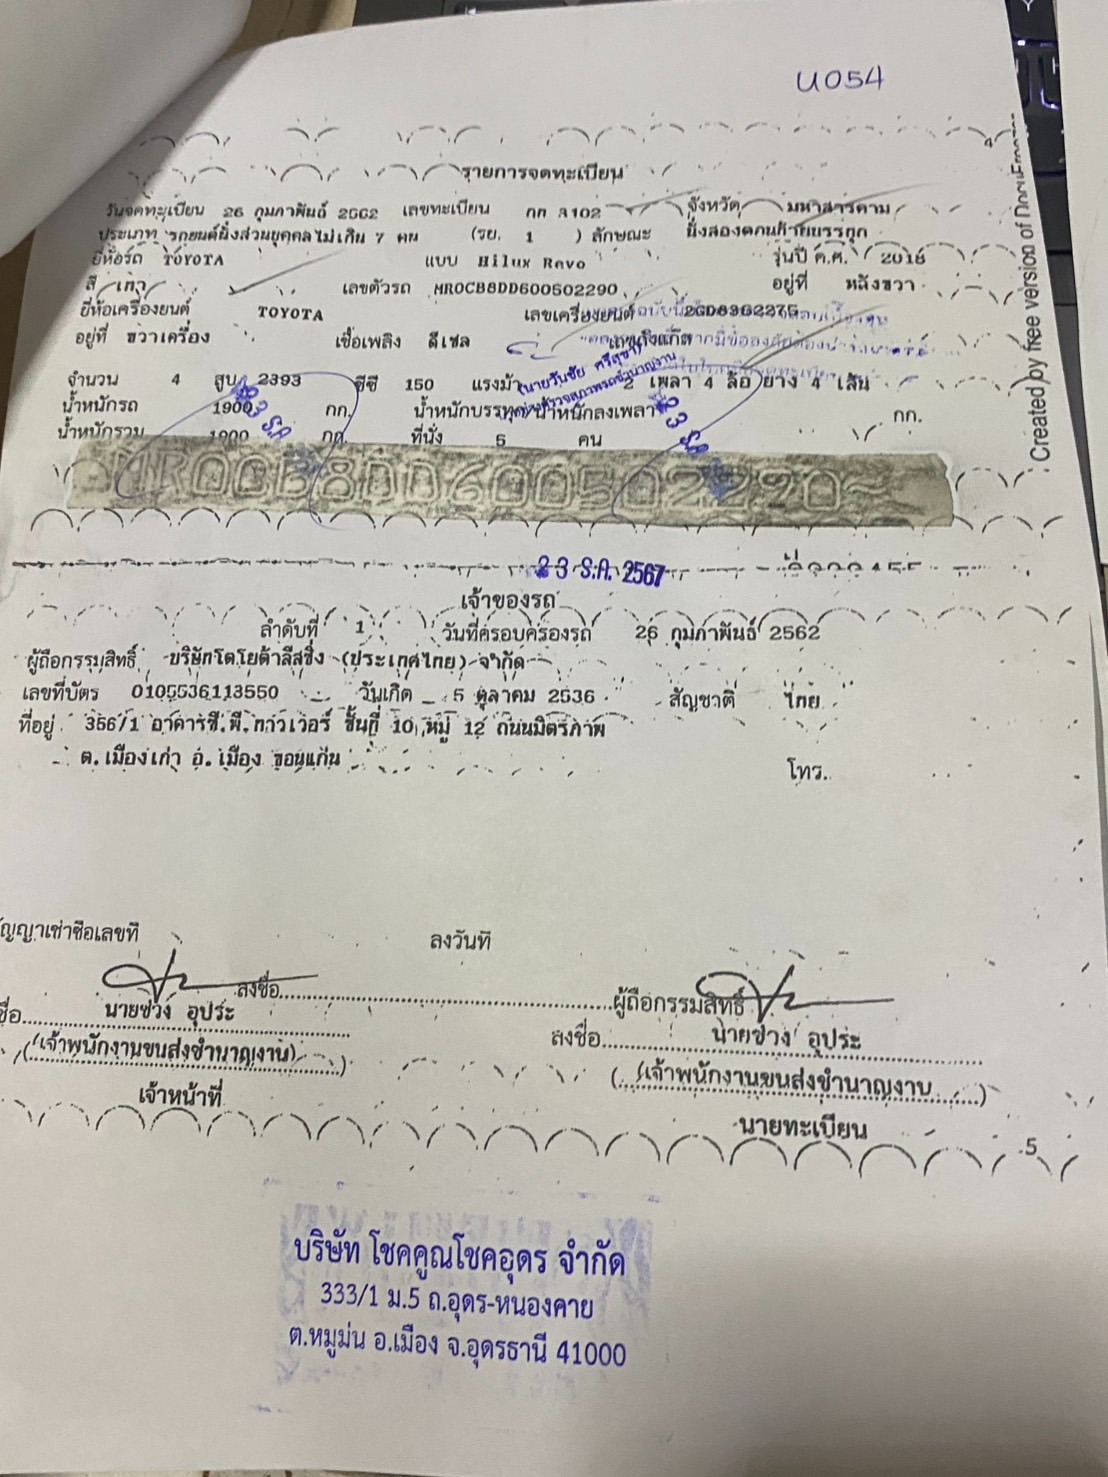 U054
รายการจดทะเบียน
วันจดทะเบียน 26 กุมภาพันธ์ 2562 เลขทะเบียน กก 3102 จังหวัด มหาสารคาม
ประเภท รถยนต์นั่งส่วนบุคคลไม่เกิน 7 คน (รย. 1 ) ลักษณะ นั่งสองตอนท้ายบรรทุก
ยี่ห้อรถ TOYOTA แบบ Hilux Revo รุ่นปี ค.ศ. 2018
สี เทา เลขตัวรถ MR0CB8DD600502290 อยู่ที่ หลังขวา
ยี่ห้อเครื่องยนต์ TOYOTA เลขเครื่องยนต์
อยู่ที่ ขวาเครื่อง เชื้อเพลิง ดีเซล เลขถังแก๊ส
(นายวันชัย ศรีสุขา)
จำนวน 4 สูบ 2393 ซีซี 150 แรงม้า 2 เพลา 4 ล้อ ยาง 4 เส้น
น้ำหนักรถ 1900 กก. น้ำหนักบรรทุก/น้ำหนักลงเพลา กก.
น้ำหนักรวม 1900 กก. ที่นั่ง 5 คน
23 ธ.ค. 23 ธ.ค.
MR0CB8DD600502290
23 ธ.ค. 2567
เจ้าของรถ
ลำดับที่ 1 วันที่ครอบครองรถ 26 กุมภาพันธ์ 2562
ผู้ถือกรรมสิทธิ์ บริษัทโตโยต้าลีสซิ่ง (ประเทศไทย) จำกัด
เลขที่บัตร 0105536113550 วันเกิด 5 ตุลาคม 2536 สัญชาติ ไทย
ที่อยู่ 356/1 อาคารซี.พี.ทาวเวอร์ ชั้นที่ 10 หมู่ 12 ถนนมิตรภาพ
ต.เมืองเก่า อ.เมือง ขอนแก่น โทร.
สัญญาเช่าซื้อเลขที่ ลงวันที่
ลงชื่อ ผู้ถือกรรมสิทธิ์
นายช่วง อุประ
(เจ้าพนักงานขนส่งชำนาญงาน)
เจ้าหน้าที่
ลงชื่อ นายช่วง อุประ
(เจ้าพนักงานขนส่งชำนาญงาน)
นายทะเบียน
5
บริษัท โชคคูณโชคอุดร จำกัด
333/1 ม.5 ถ.อุดร-หนองคาย
ต.หมูม่น อ.เมือง จ.อุดรธานี 41000
Created by free version of